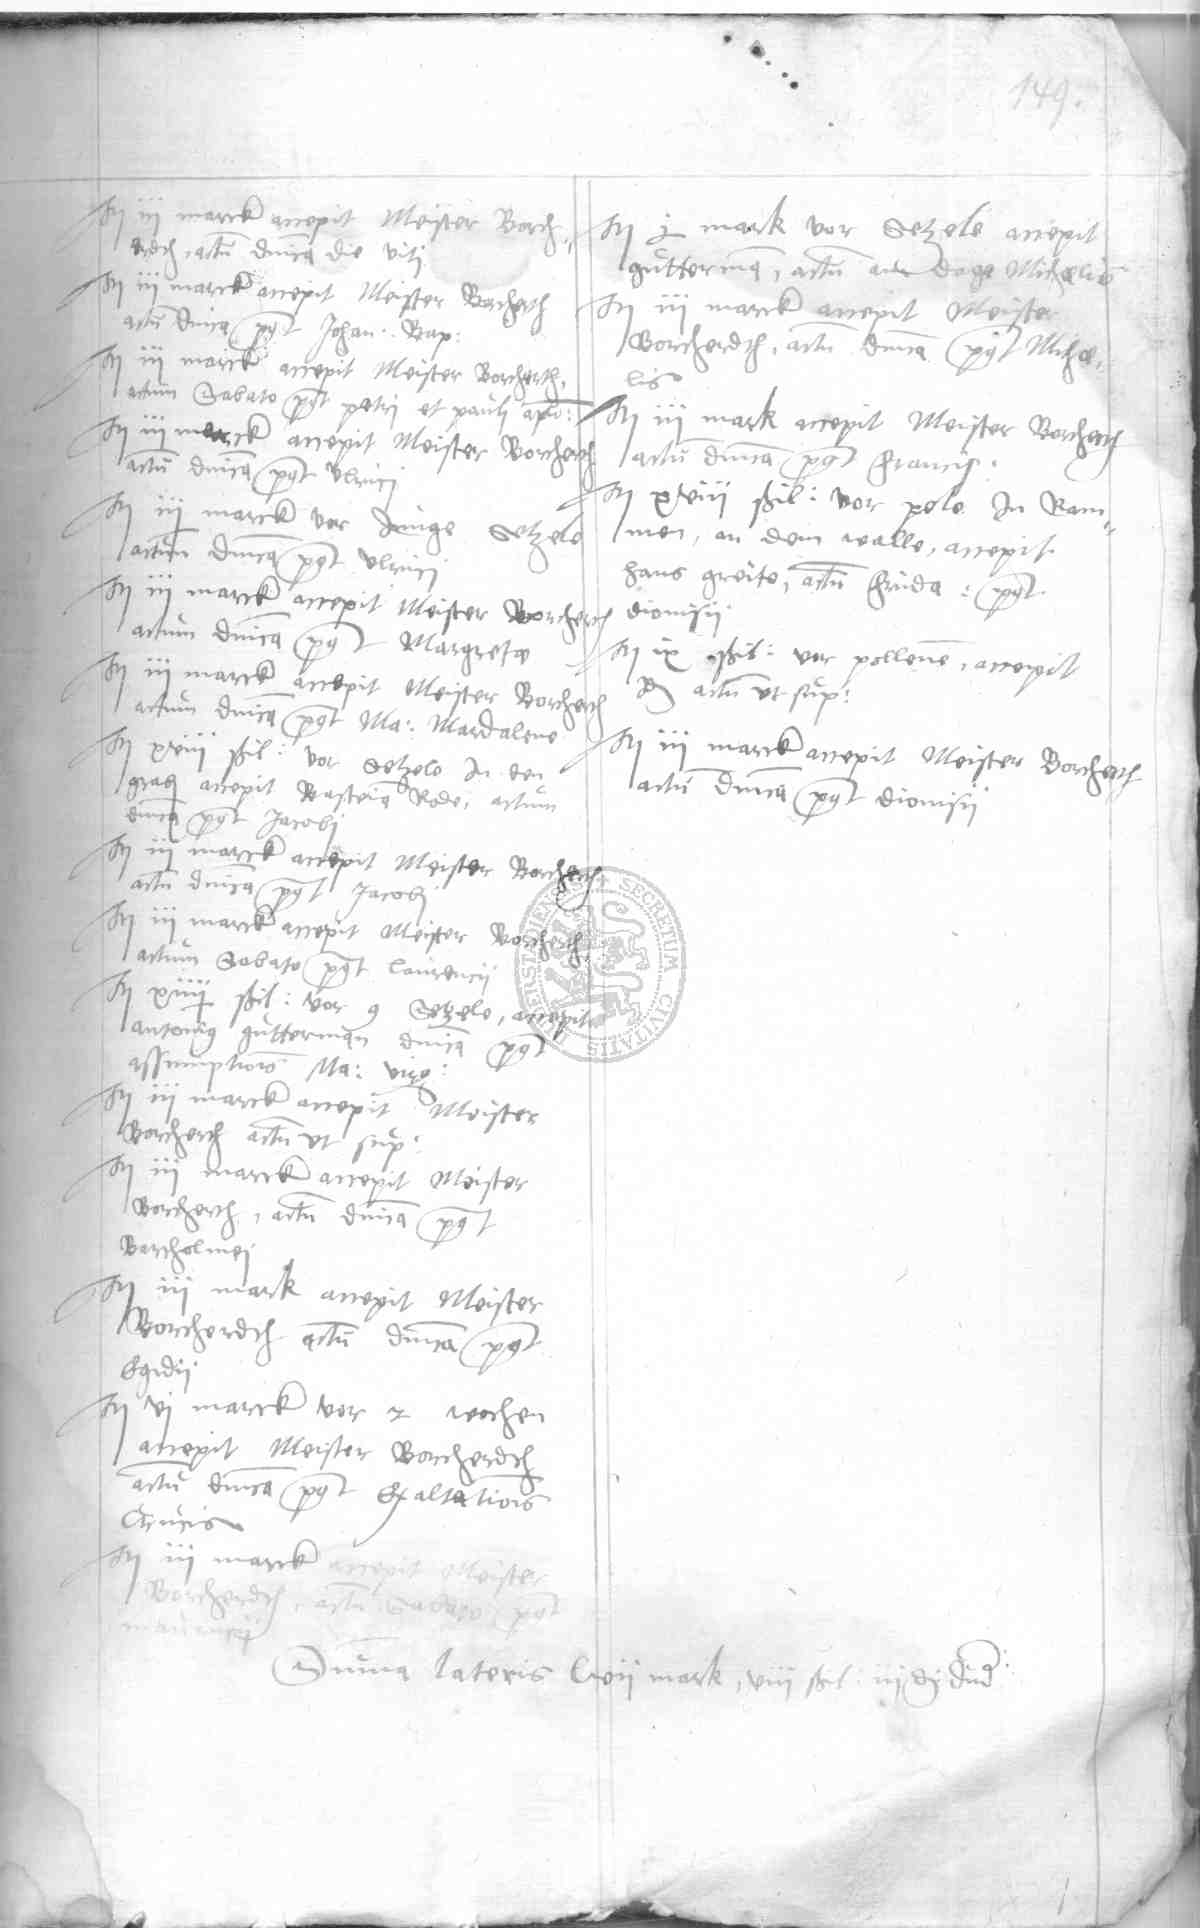 149.
It iij marck accepit Meister Borch„
erdch, actũ dñica die viti
It iij marck accepit Meister Borcherch
actũ dñica pꝯt Johan: Bap:
It iij marck accepit Meister Borcherth,
actum Sabato pꝯt petri et pauli apo:
It iij marck accepit Meister Borcherch
actũ dñica pꝯt Vlrici
It iij marck vor Junge Setzele
actum dñica pꝯt Vlrici
It iij marck accepit Meister Borcherch
actum dñica pꝯt Margrete
It iij marck accepit Meister Borcherch
actum dñica pꝯt Ma: Mardalene
It xviij ßil: vor Setzele In den
grabẽ accepit Bastciã Rode, actum
dñica pꝯt Jacobi
It iij marck accepit Meister Borcherch
actũ dñica pꝯt Jacobi
It iij marck accepit Meister Borcherch
actum Sabato pꝯt laurencij
It xiiij ßil: vor 9 Setzele, accepit
antoniꝯ gutterman dñica pꝯt
assumptiõis Ma: virg:
It iij marck accepit Meister
Borcherch actũ vt sup:
It iij marck accepit Meister
Borcherch, actũ dñica pꝯt
Barcholmei
It iij mark accepit Meister
Borcherdch actũ dñica pꝯt
Egidij
It vj marck vor 2 wochen
accepit Meister Borcherdch
actũ dñica pꝯt Exaltatiõis
Crucis
It iij marck accepit Meister
Borcherdch, actũ Sabato pꝯt
mauricij
It j mark vor Setzele accepit
guttermã, actũ am dage Michaelis
It iij marck accepit Meister
Borcherdth, actũ dñica pꝯt Micha„
lis
It iij mark accepit Meister Borcherch
actũ dñica pꝯt francisi
It xviij ßil: vor pele In Ram„
men, an dem walle, accepit
hans greite, actũ frida: pꝯt
dionisii
It ix ßil: vor pollene, accepit
actũ vt sup:
It iij marck accepit Meister Borcherch
actũ dñica pꝯt dionisij
Suma lateris lvij mark, viij ßil: iij
SECRETUM CIVITATIS